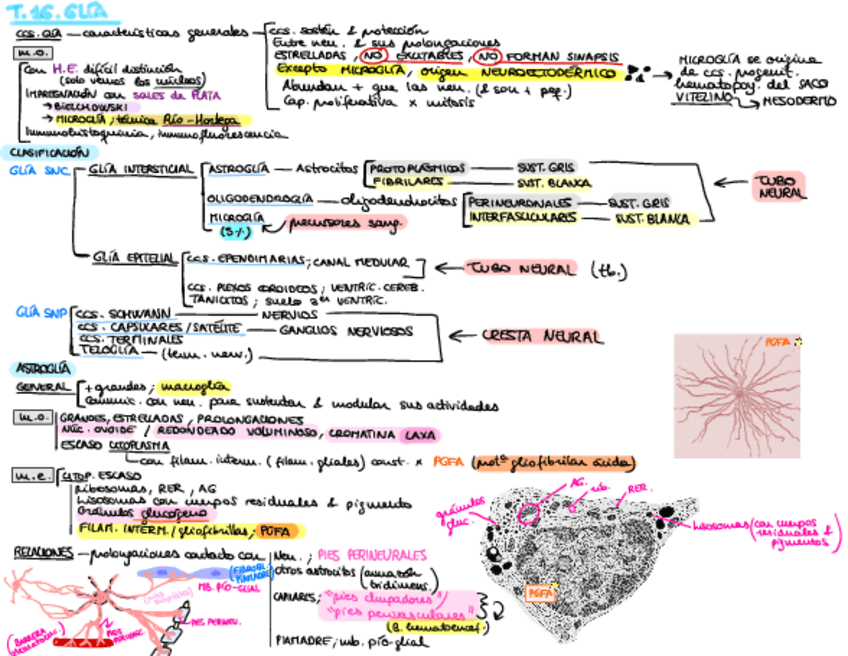 T.16. GLÍA
ccs. GLÍA — características generales
ccs. sostén & protección
Entre neu. & sus prolongaciones
ESTRELLADAS, NO EXCITABLES, NO FORMAN SINAPSIS
Excepto MICROGLÍA, origen NEUROECTODÉRMICO
Abundan + que las neu. (& son + peq.)
Cap. proliferativa x mitosis
MICROGLÍA se origina
de ccs. progenit.
hematopoy. del SACO
VITELINO → MESODERMO
m.o.
con H.E. difícil distinción
(solo vemos los núcleos)
IMPREGNACIÓN con sales de PLATA
→ BIELCHOWSKI
→ MICROGLÍA; técnica Río-Hortega
Inmunohistoquimia, inmunofluorescencia
CLASIFICACIÓN
GLÍA SNC
GLÍA INTERSTICIAL
ASTROGLÍA — Astrocitos
PROTOPLÁSMICOS — SUST. GRIS
FIBRILARES — SUST. BLANCA
OLIGODENDROGLÍA — oligodendrocitos
PERINEURONALES — SUST. GRIS
INTERFASCICULARES — SUST. BLANCA
MICROGLÍA
(5%)
precursores sang.
← TUBO
NEURAL
GLÍA EPITELIAL
ccs. EPENDIMARIAS; CANAL MEDULAR
ccs. PLEXOS COROIDEOS; VENTRÍC. CEREB.
TANICITOS; suelo 3er VENTRÍC.
← TUBO NEURAL (tb.)
GLÍA SNP
ccs. SCHWANN — NERVIOS
ccs. CAPSULARES/SATÉLITE — GANGLIOS NERVIOSOS
ccs. TERMINALES
TELOGLÍA — (term. nerv.)
← CRESTA NEURAL
ASTROGLÍA
GENERAL
+ grandes; macroglía
Comunic. con neu. para sustentar & modular sus actividades
m.o.
GRANDES, ESTRELLADAS, PROLONGACIONES
NÚC. OVOIDE / REDONDEADO VOLUMINOSO, CROMATINA LAXA
ESCASO CITOPLASMA
con filam. interm. (filam. gliales) const. x PGFA (protª gliofibrilar ácida)
PGFA
m.e.
CITOP. ESCASO
ribosomas, RER, AG
Lisosomas con cuerpos residuales & pigmento
Gránulos glucógeno
FILAM. INTERM./gliofibrillas; PGFA
gránulos
gluc.
AG.
rib.
RER.
Lisosomas (con cuerpos
residuales &
pigmentos)
PGFA
RELACIONES — prolongaciones contacto con
Neu.; PIES PERINEURALES
otros astrocitos (armazón
tridimens.)
CAPILARES; "pies chupadores"
"pies perivasculares"
(B. hematoencef.)
PIAMADRE; mb. pío-glial
MB. PÍO-GLIAL
PIES PERINEU.